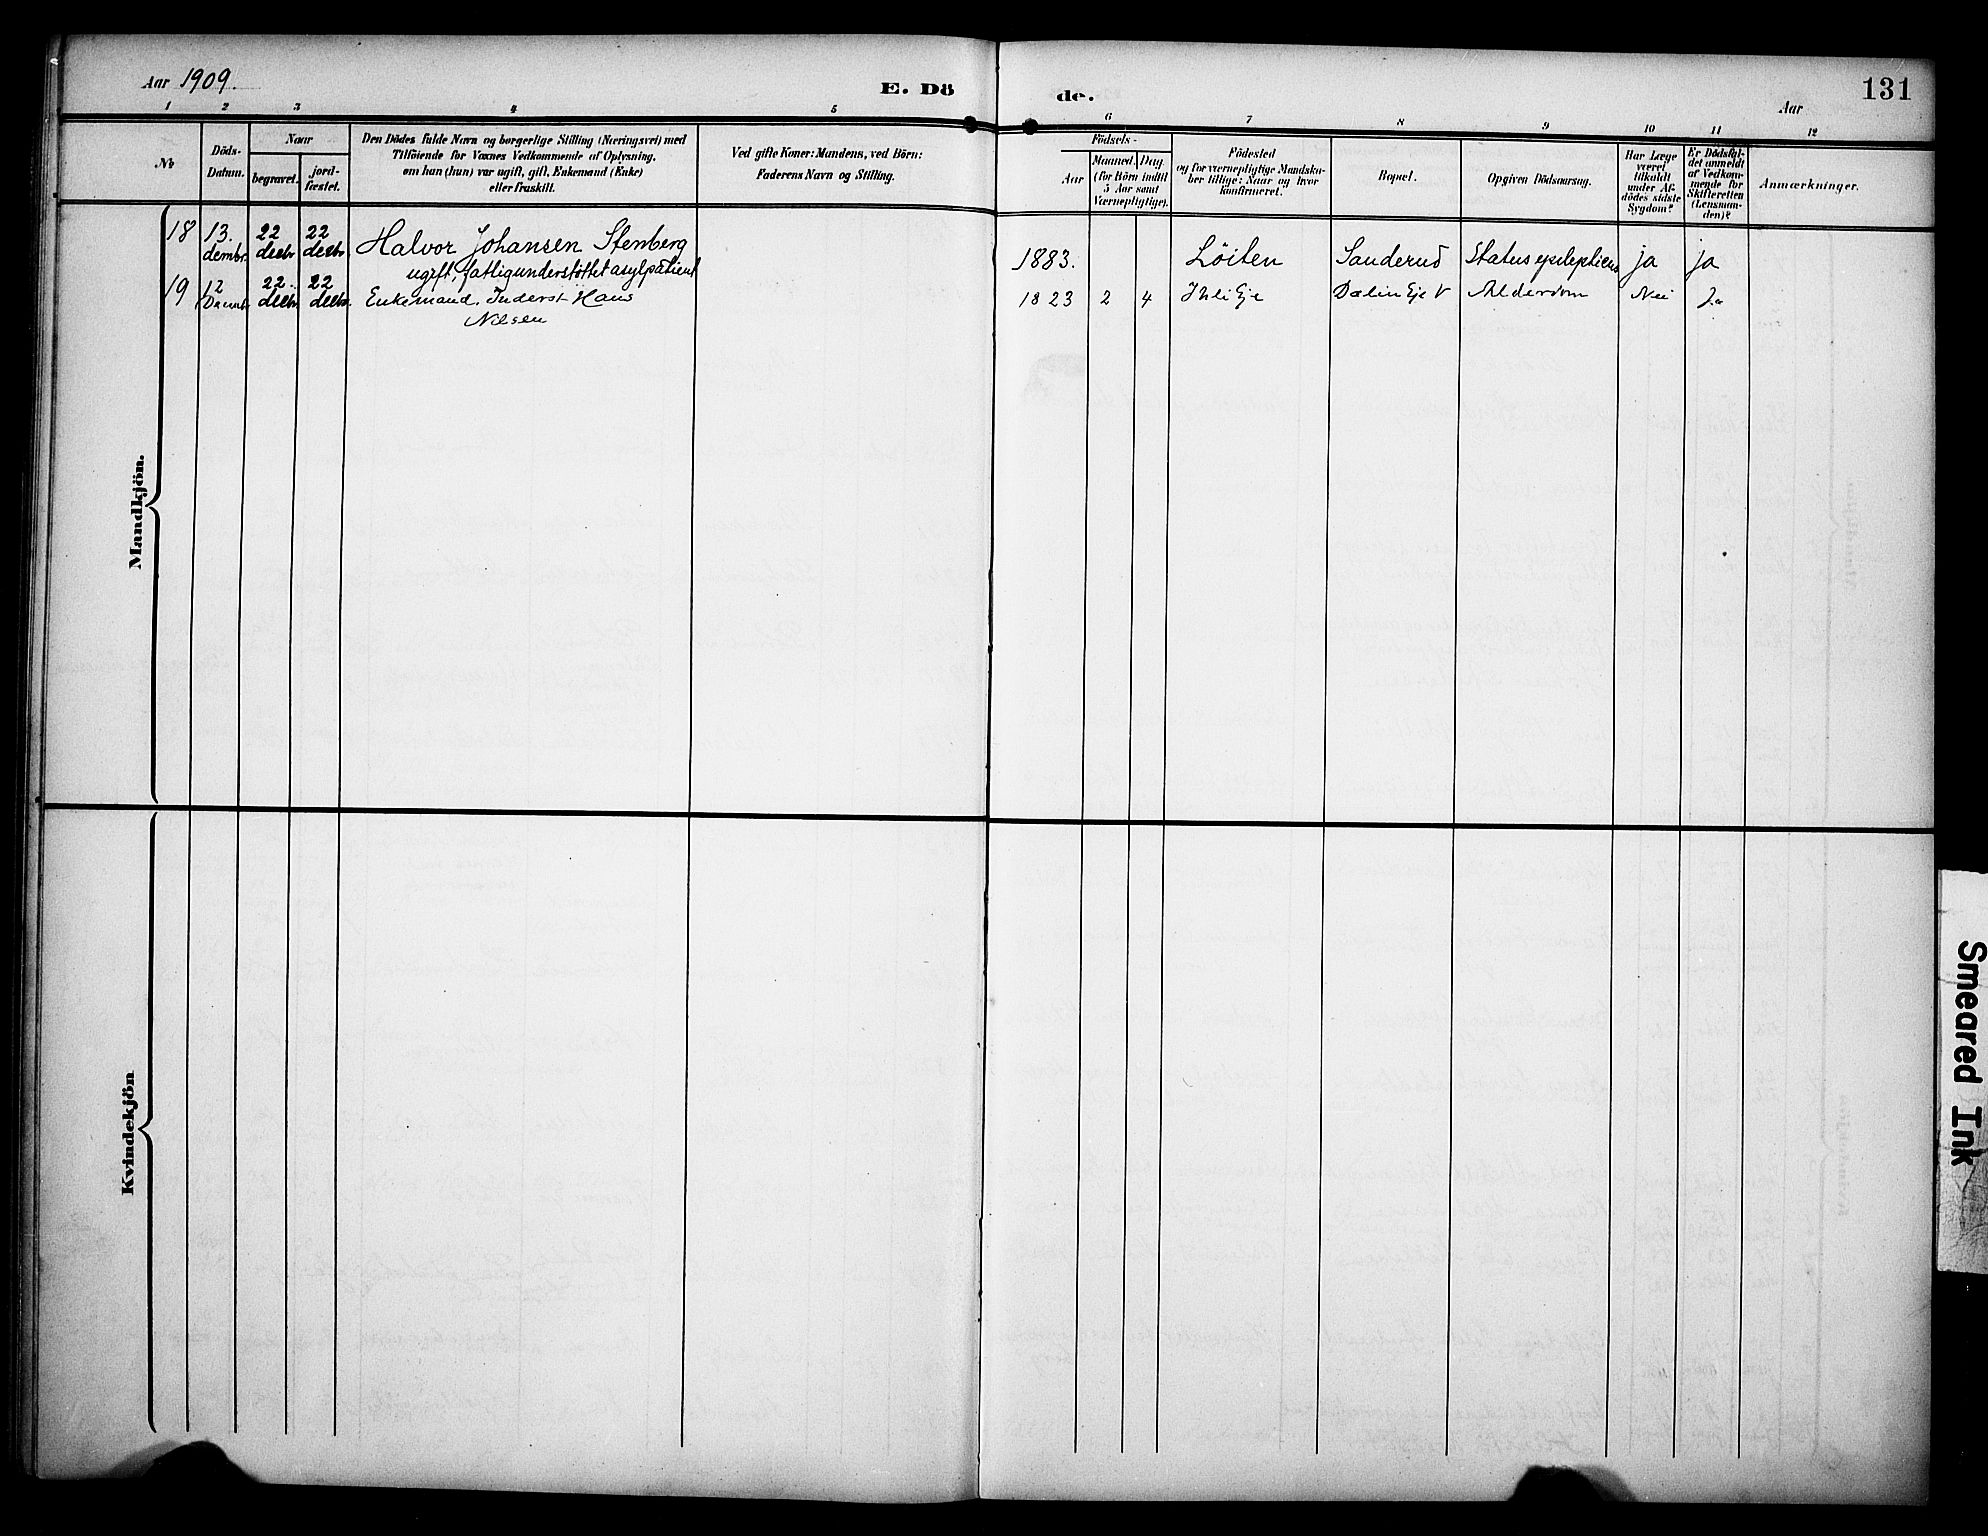 Aar 1909.
E. Dö
de.
Aar
131
1 2 3 4 5 6 7 8 9 10 11 12
No
Döds-
Datum.
Naar
begravet.
jord-
fæstet.
Den Dödes fulde Navn og borgerlige Stilling (Næringsvei) med
Tilföiende for Voxnes Vedkommende af Oplysning,
om han (hun) var ugift, gift, Enkemand (Enke)
eller fraskilt.
Ved gifte Koner: Mandens, ved Börn:
Faderens Navn og Stilling.
Födsels-
Aar
Maaned. Dag.
(for Börn indtil
5 Aar samt
Værnepligtige).
Födested
og for værnepligtige Mandska-
ber tillige: Naar og hvor
konfirmeret.
Bopæl.
Opgiven Dödsaarsag.
Har Læge
været
tilkaldt
under Af-
dödes sidste
Sygdom?
Er Dödsfal-
det anmeldt
af Vedkom-
mende for
Skifteretten
(Lensman-
den)?
Anmærkninger.
Mandkjön.
18 13. dembr. 22 decbr 22 decbr Halvor Johansen Stenberg
ugift, fatligunderstøttet asylpatient 1883. Løiten Sanderud Status epilepticus ja ja
19 12 22. decbr 22 decbr. Enkemand, Inderst Hans
Nilsen 1823 2 4 Alderdom Nei Ja
Kvindekjön
Smeared Ink